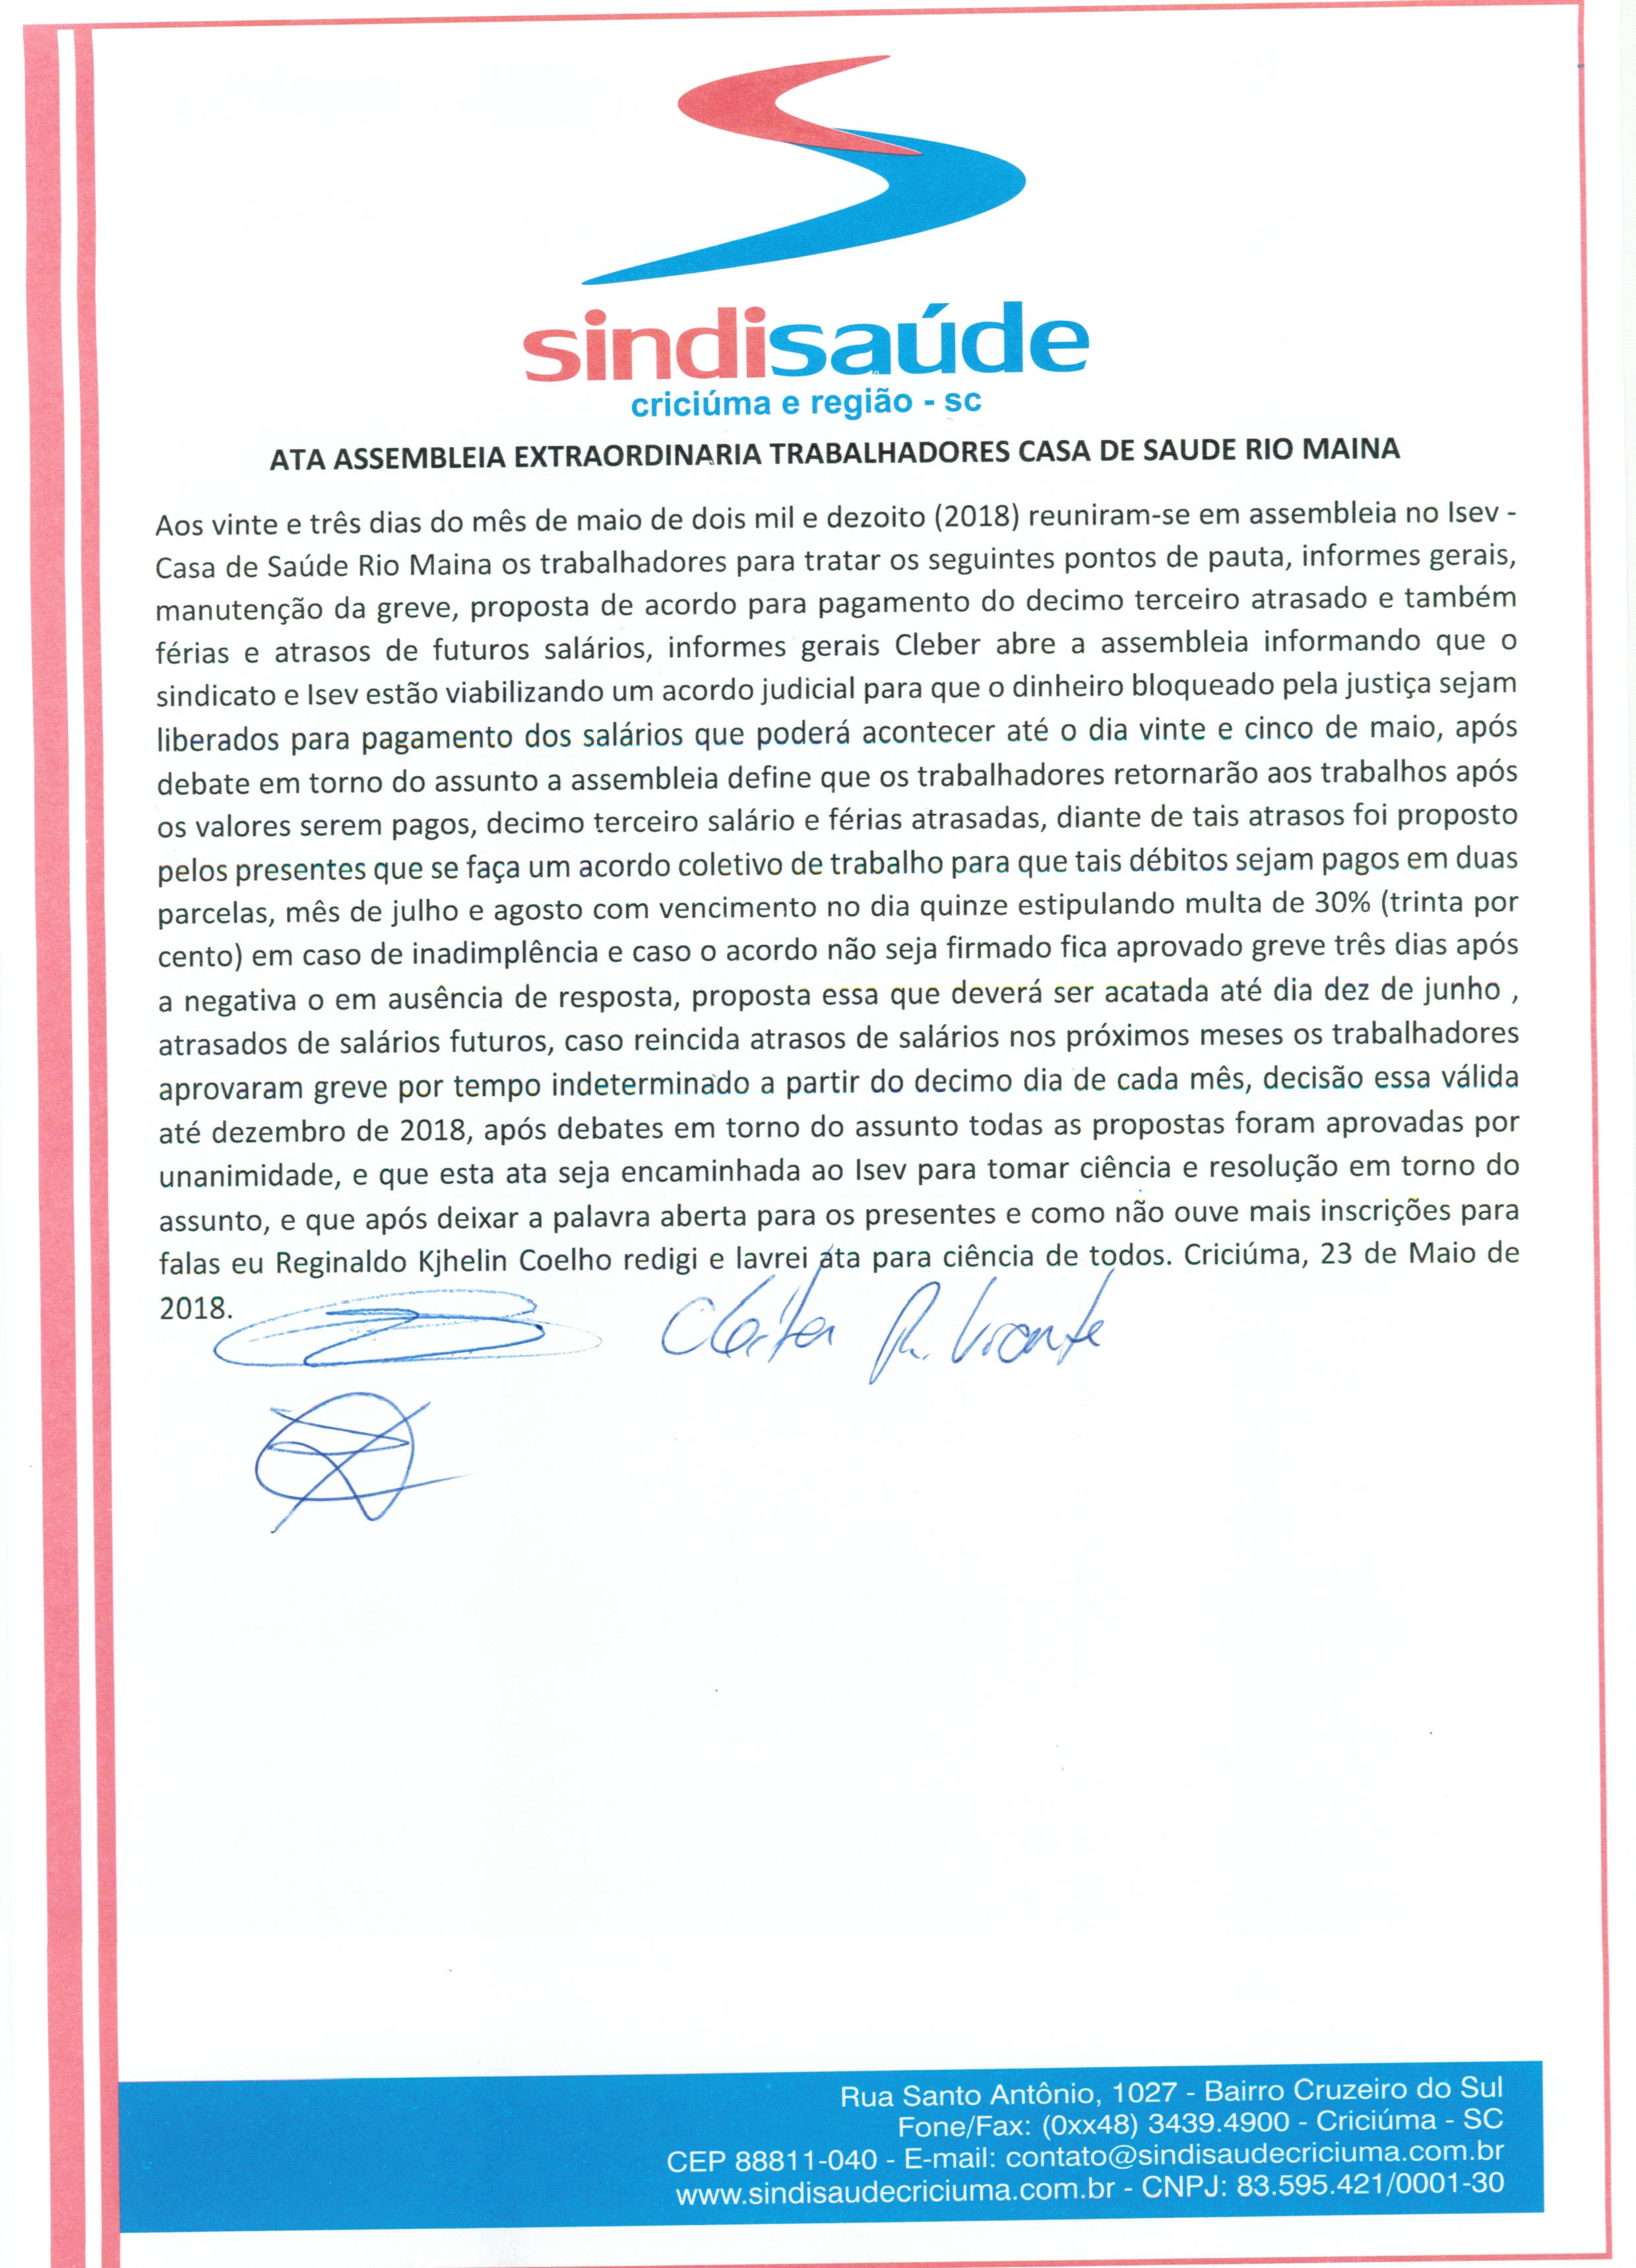 sindisaúde
criciúma e região - sc
ATA ASSEMBLEIA EXTRAORDINARIA TRABALHADORES CASA DE SAUDE RIO MAINA
Aos vinte e três dias do mês de maio de dois mil e dezoito (2018) reuniram-se em assembleia no Isev -
Casa de Saúde Rio Maina os trabalhadores para tratar os seguintes pontos de pauta, informes gerais,
manutenção da greve, proposta de acordo para pagamento do decimo terceiro atrasado e também
férias e atrasos de futuros salários, informes gerais Cleber abre a assembleia informando que o
sindicato e Isev estão viabilizando um acordo judicial para que o dinheiro bloqueado pela justiça sejam
liberados para pagamento dos salários que poderá acontecer até o dia vinte e cinco de maio, após
debate em torno do assunto a assembleia define que os trabalhadores retornarão aos trabalhos após
os valores serem pagos, decimo terceiro salário e férias atrasadas, diante de tais atrasos foi proposto
pelos presentes que se faça um acordo coletivo de trabalho para que tais débitos sejam pagos em duas
parcelas, mês de julho e agosto com vencimento no dia quinze estipulando multa de 30% (trinta por
cento) em caso de inadimplência e caso o acordo não seja firmado fica aprovado greve três dias após
a negativa o em ausência de resposta, proposta essa que deverá ser acatada até dia dez de junho ,
atrasados de salários futuros, caso reincida atrasos de salários nos próximos meses os trabalhadores
aprovaram greve por tempo indeterminado a partir do decimo dia de cada mês, decisão essa válida
até dezembro de 2018, após debates em torno do assunto todas as propostas foram aprovadas por
unanimidade, e que esta ata seja encaminhada ao Isev para tomar ciência e resolução em torno do
assunto, e que após deixar a palavra aberta para os presentes e como não ouve mais inscrições para
falas eu Reginaldo Kjhelin Coelho redigi e lavrei ata para ciência de todos. Criciúma, 23 de Maio de
2018.
Rua Santo Antônio, 1027 - Bairro Cruzeiro do Sul
Fone/Fax: (0xx48) 3439.4900 - Criciúma - SC
CEP 88811-040 - E-mail: contato@sindisaudecriciuma.com.br
www.sindisaudecriciuma.com.br - CNPJ: 83.595.421/0001-30